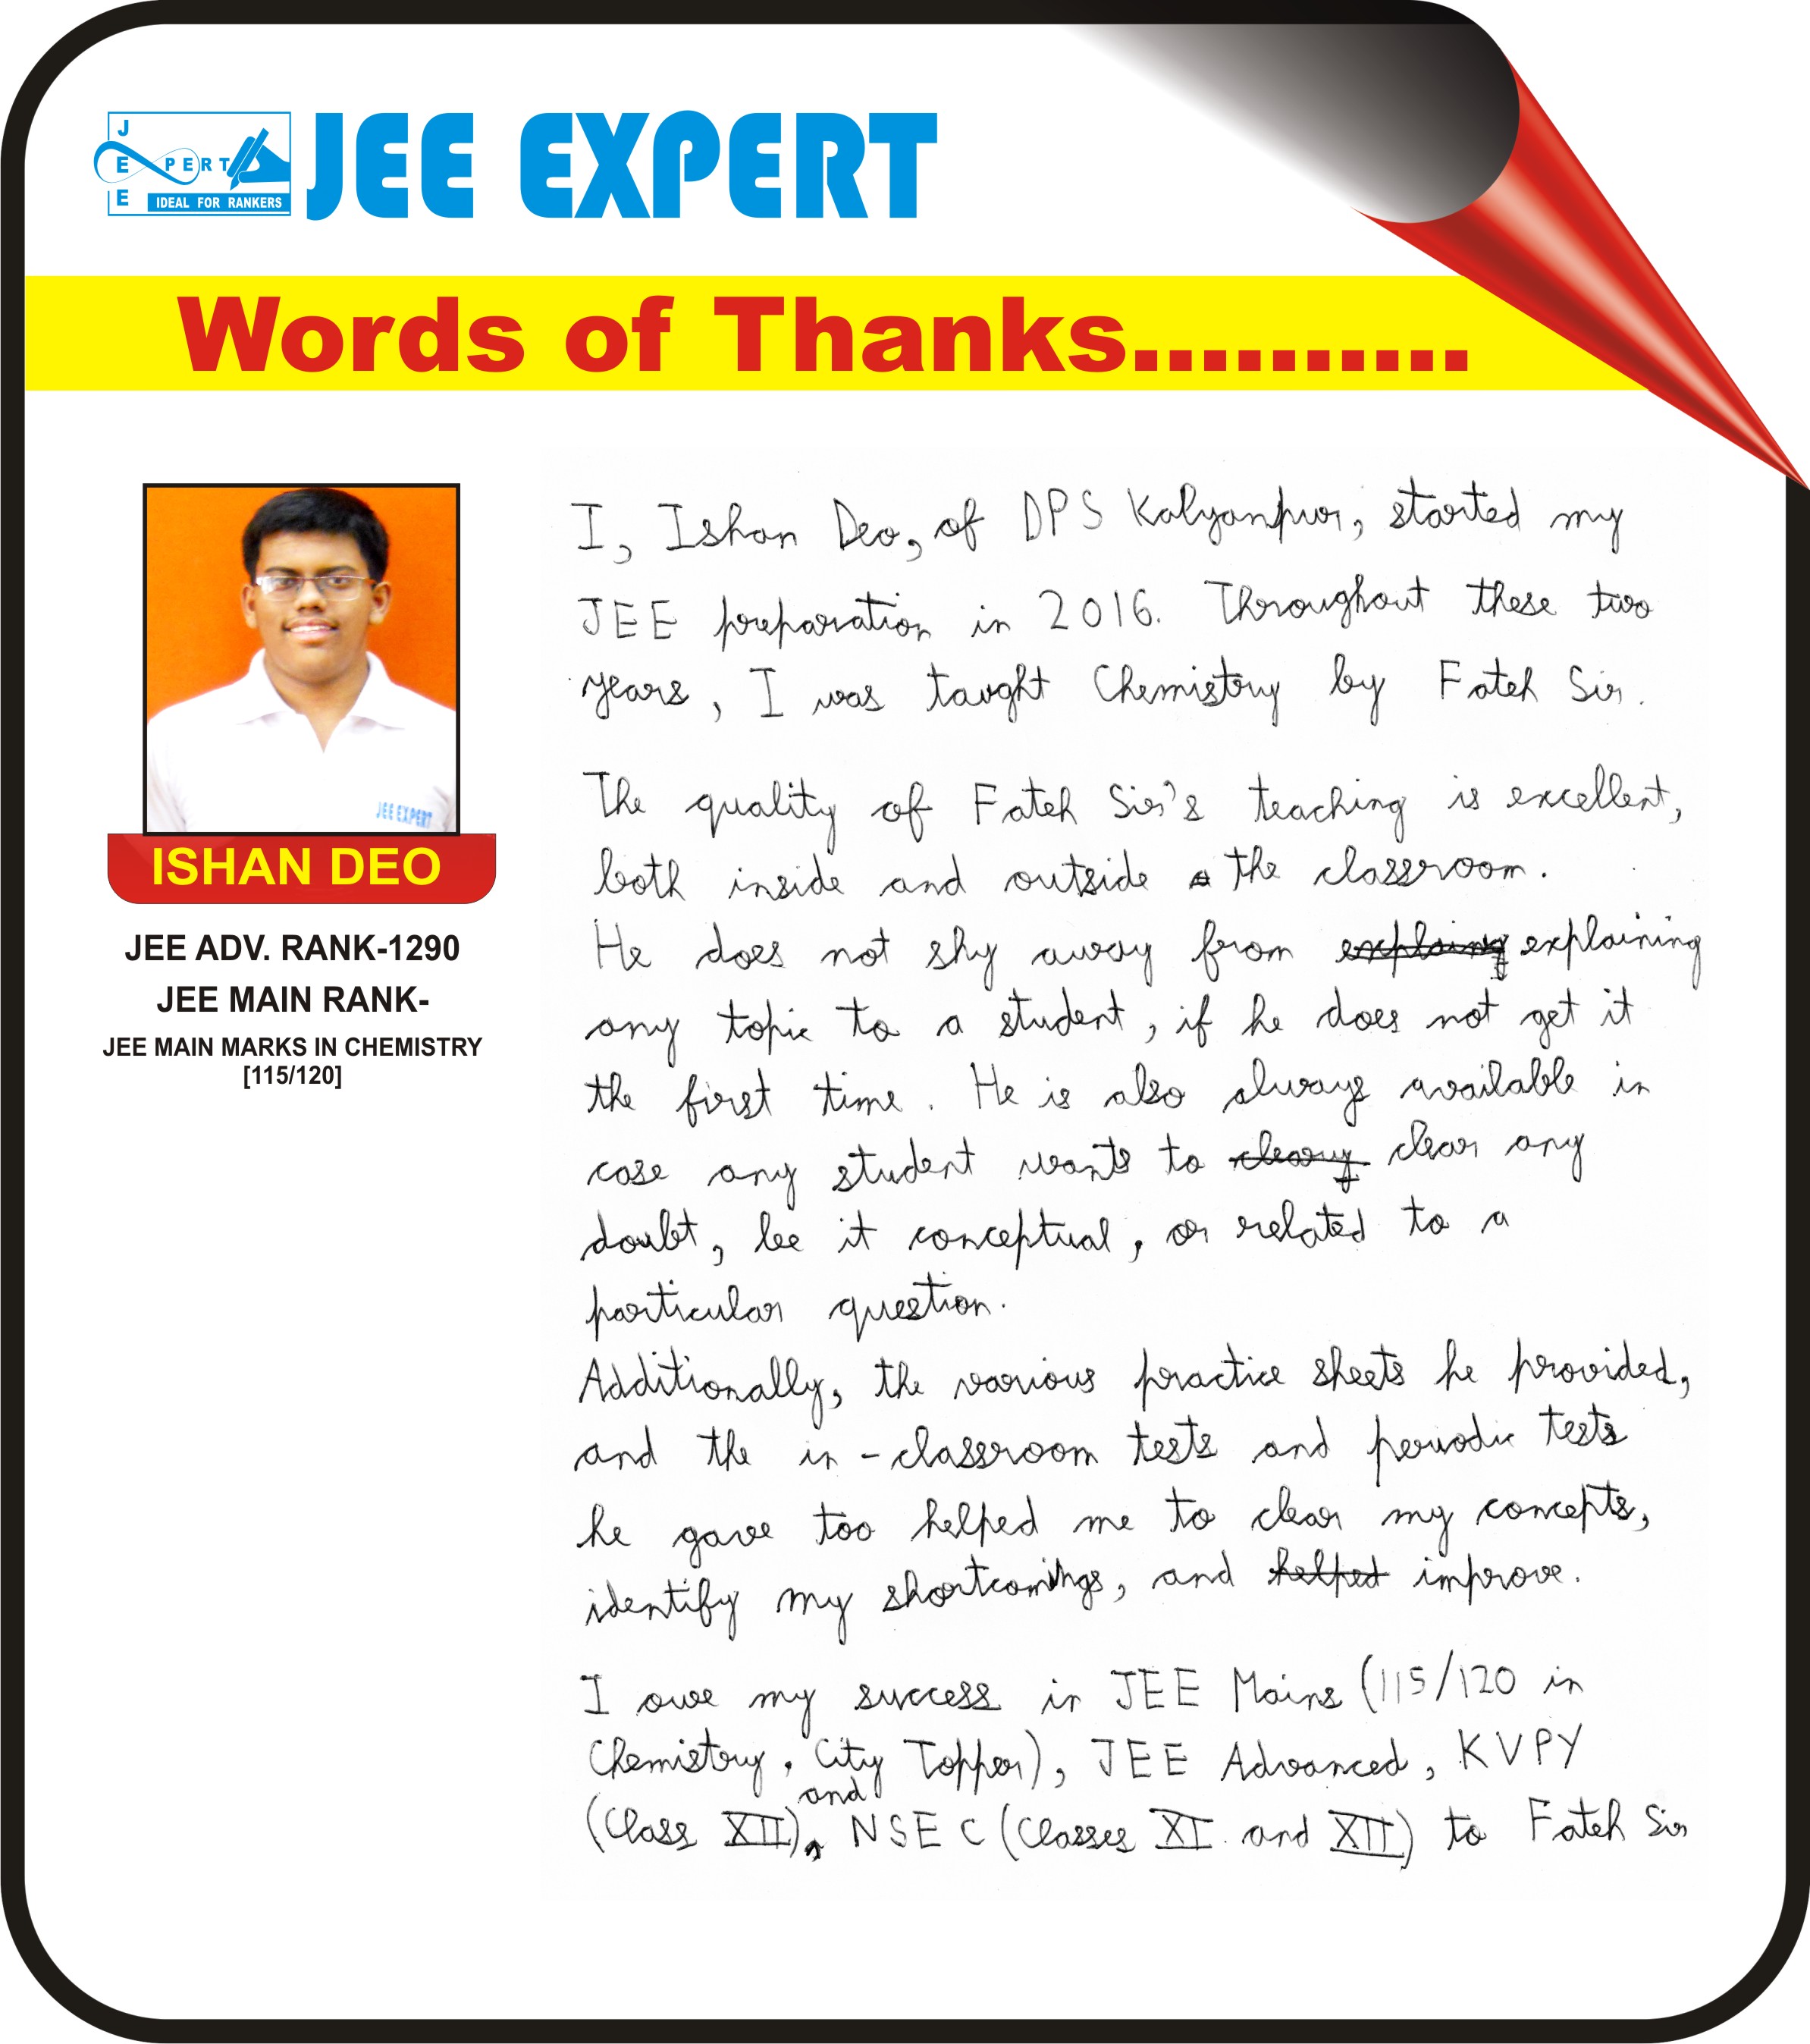 JEE
EXPERT
IDEAL FOR RANKERS
JEE EXPERT
Words of Thanks..........
JEE EXPERT
ISHAN DEO
JEE ADV. RANK-1290
JEE MAIN RANK-
JEE MAIN MARKS IN CHEMISTRY
[115/120]
I, Ishan Deo, of DPS Kalyanpur, started my
JEE preparation in 2016. Throughout these two
years, I was taught Chemistry by Fateh Sir.
The quality of Fateh Sir's teaching is excellent,
both inside and outside the classroom.
He does not shy away from explaining
any topic to a student, if he does not get it
the first time. He is also always available in
case any student wants to clear any
doubt, be it conceptual, or related to a
particular question.
Additionally, the various practice sheets he provided,
and the in-classroom tests and periodic tests
he gave too helped me to clear my concepts,
identify my shortcomings, and helped improve.
I owe my success in JEE Mains (115/120 in
Chemistry, City Topper), JEE Advanced, KVPY
(Class XII), and NSEC (Classes XI and XII) to Fateh Sir